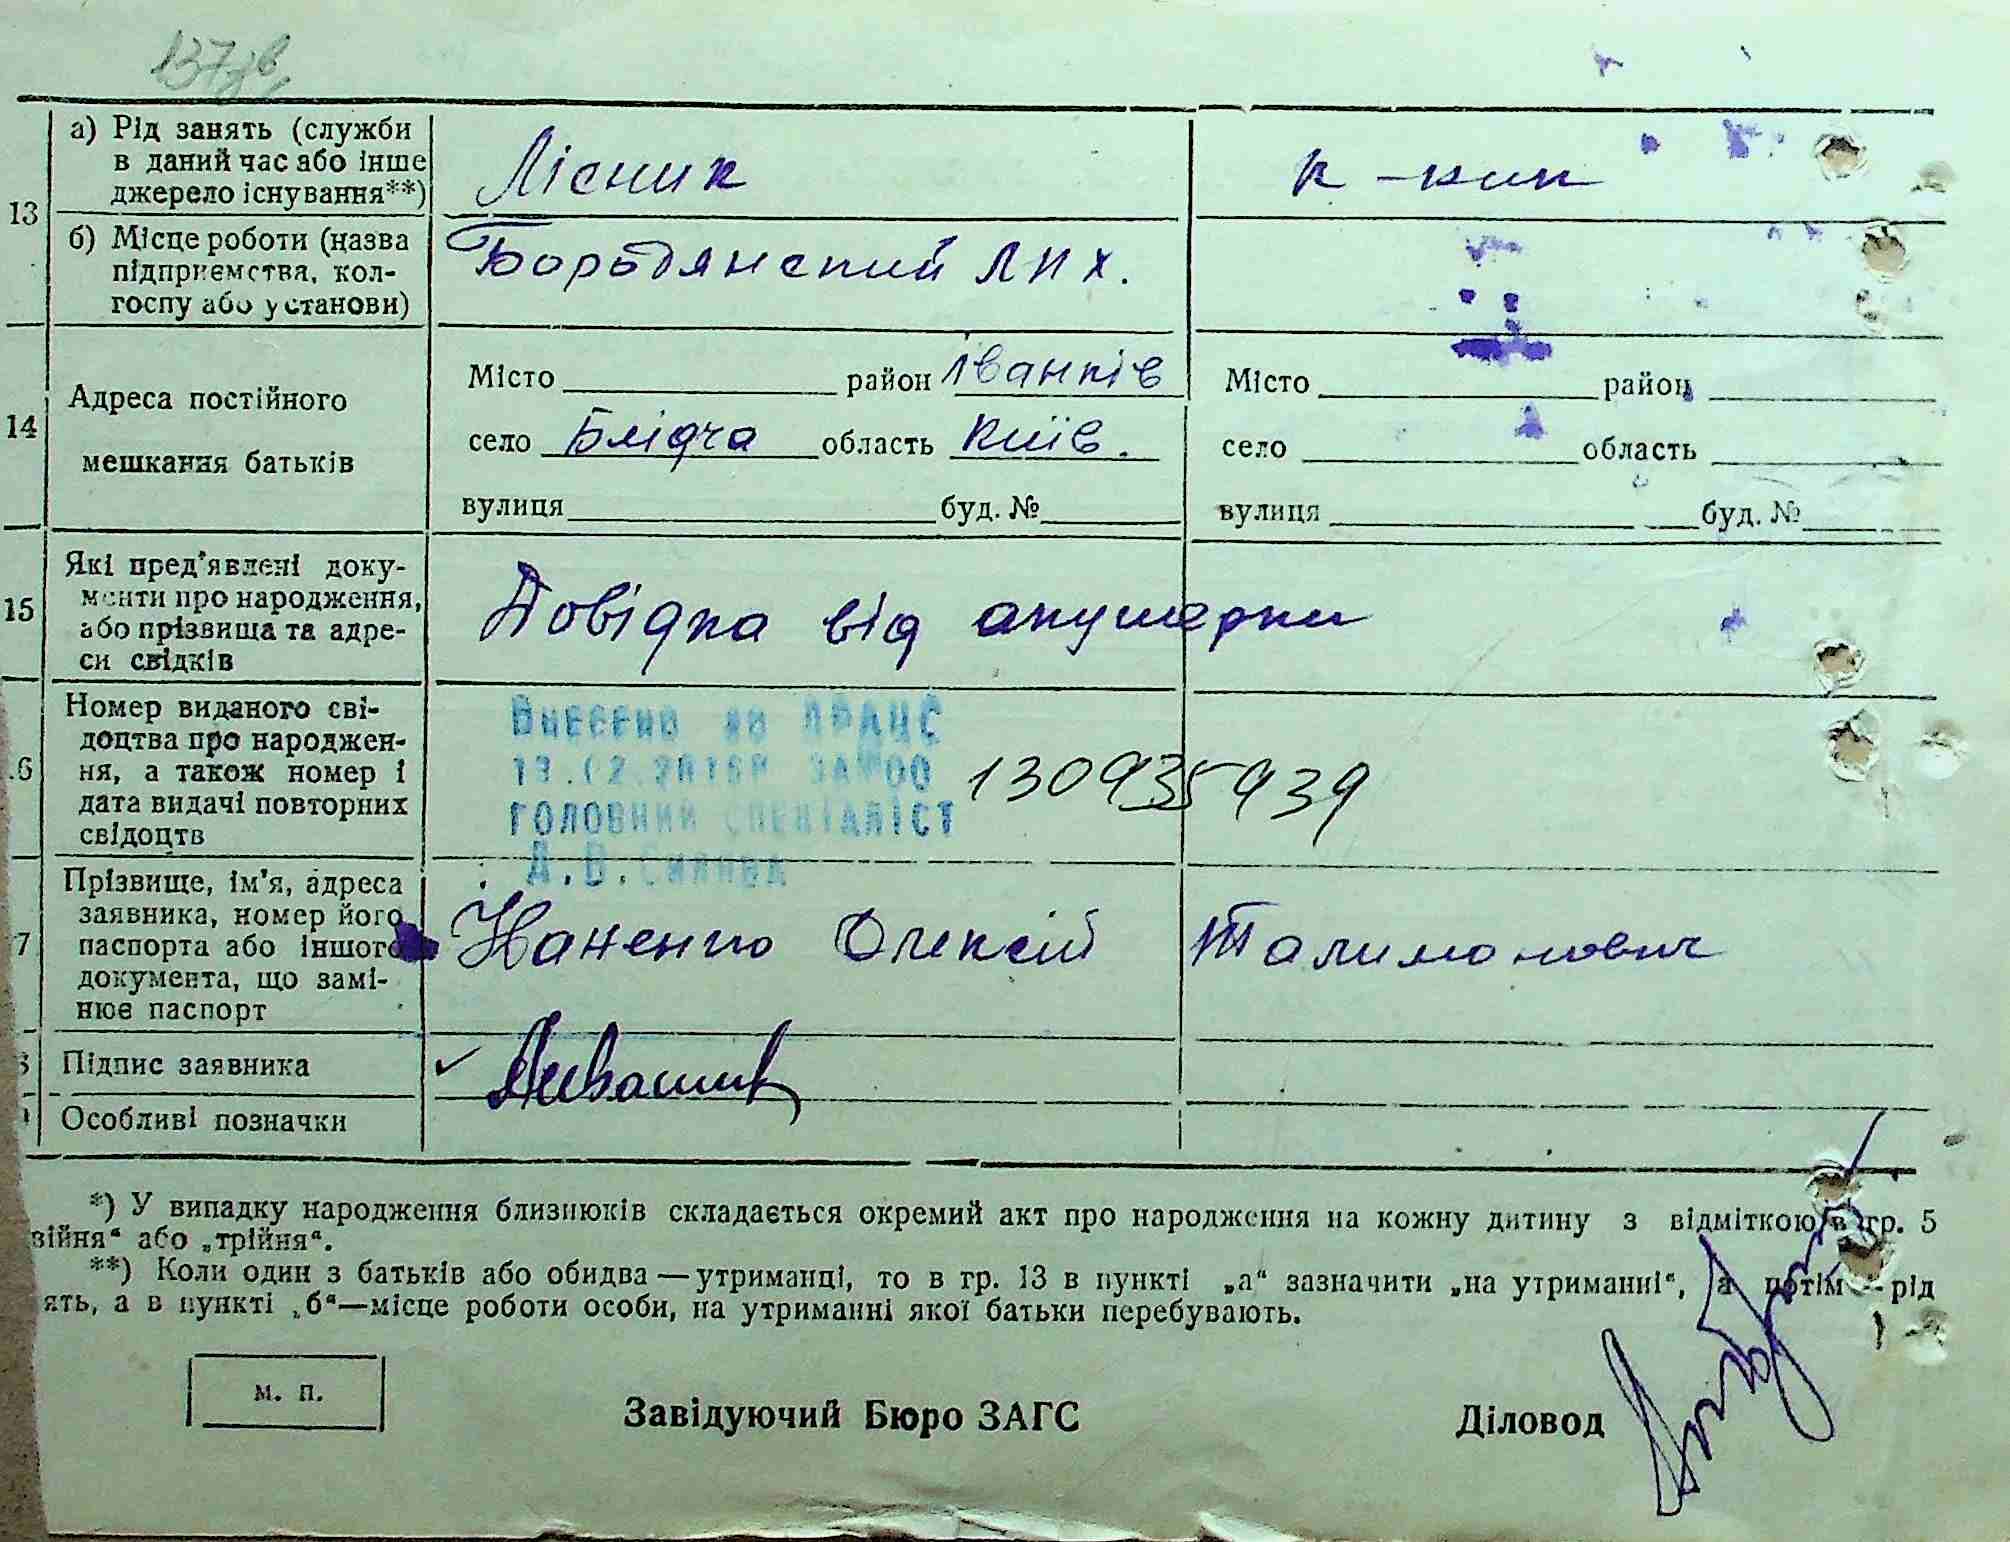 137зв.
13
а) Рід занять (служби
в даний час або інше
джерело існування**)
Лісник
к-ник
б) Місце роботи (назва
підприємства, кол-
госпу або установи)
Бородянский ЛПХ.
14
Адреса постійного
мешкання батьків
Місто район Іванків
село Блідча область Київ.
вулиця буд. №
Місто район
село область
вулиця буд. №
15
Які пред'явлені доку-
менти про народження,
або прізвища та адре-
си свідків
Довідка від акушерки
6
Номер виданого сві-
доцтва про народжен-
ня, а також номер і
дата видачі повторних
свідоцтв
Внесено до ДРАЦС
за №00 130935939
головний спеціаліст
7
Прізвище, ім'я, адреса
заявника, номер його
паспорта або іншого
документа, що замі-
нює паспорт
Наненко Олексій Талимонович
Підпис заявника
Особливі позначки
*) У випадку народження близнюків складається окремий акт про народження на кожну дитину з відміткою в гр. 5
війня“ або „трійня“.
**) Коли один з батьків або обидва — утриманці, то в гр. 13 в пункті „а“ зазначити „на утриманні“, а потім — рід
ять, а в пункті „б“—місце роботи особи, на утриманні якої батьки перебувають.
м. п.
Завідуючий Бюро ЗАГС
Діловод